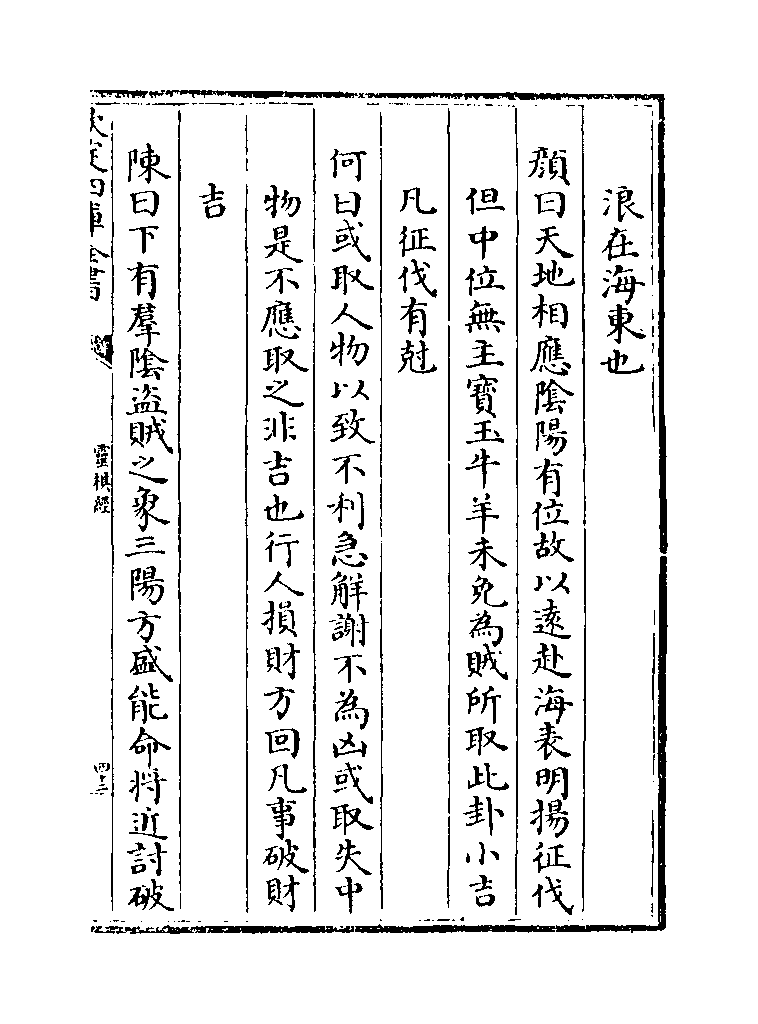 浪在海東也
顔曰天地相應陰陽有位故以遠赴海表明揚征伐
但中位無主寳玉牛羊未免為賊所取此卦小吉
凡征伐有尅
何曰或取人物以致不利急解謝不為凶或取失中
物是不應取之非吉也行人損財方回凡事破財
吉
陳曰下有羣陰盜賊之象三陽方盛能命将近討破
欽定四庫全書
靈棋經
四十二